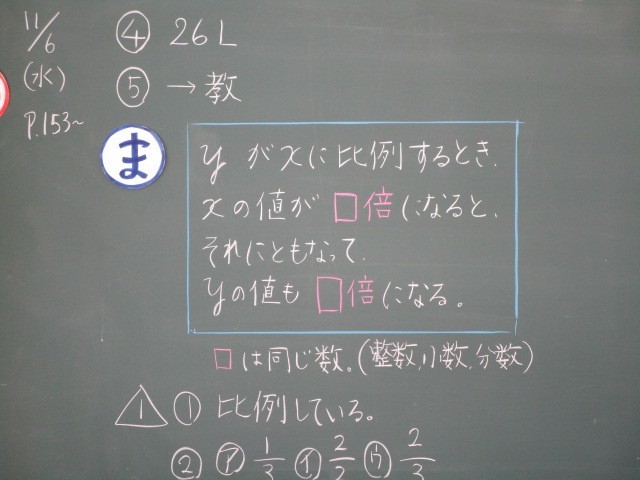 11/6
(水)
P.153~
④ 26L
⑤ →教
ま
yがxに比例するとき、
xの値が□倍になると、
それにともなって、
yの値も□倍になる。
□は同じ数。(整数、小数、分数)
△1 ① 比例している。
② ㋐ 1/3 ㋑ 2/2 ㋒ 2/3